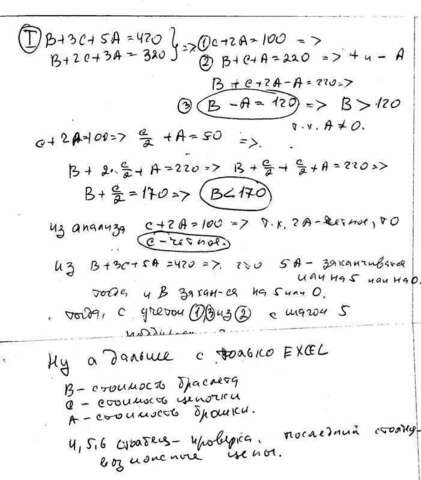 I B+3C+5A=420
B+2C+3A=320 } => ① C+2A=100 =>
② B+C+A=220 => + и - A
B+C+2A-A=220=>
③ B-A=120 => B>120
т.к. A≠0.
C+2A=100=> C/2 +A=50 =>.
B+2·C/2+A=220=> B+C/2+C/2+A=220=>
B+C/2=170=> B<170
из анализа C+2A=100=> т.к. 2A-четное, то
C-четное.
Из B+3C+5A=420=>. 5A- заканчивается
или на 5 или на 0.
тогда и B закан-ся на 5 или 0.
тогда, с учетом ①③из② с шагом 5
Ну а дальше с только EXCEL
B-стоимость браслета
C-стоимость цепочки
A-стоимость брошки.
4,5,6 столбец-проверка. последний столбец-
возможные цены.